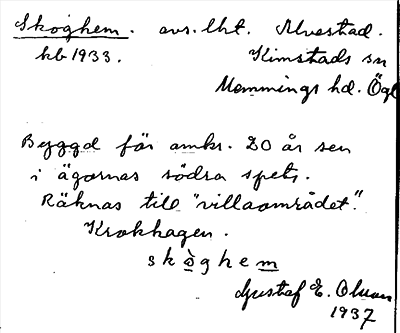 Skoghem. avs. lht. Alvestad.
kb 1933. Kimstads sn
Memmings hd. Ögl
Byggd för omkr. 20 år sen
i ägornas södra spets.
Räknas till "villaområdet".
Krokhagen.
skòghem
Gustaf E. Olsson
1937